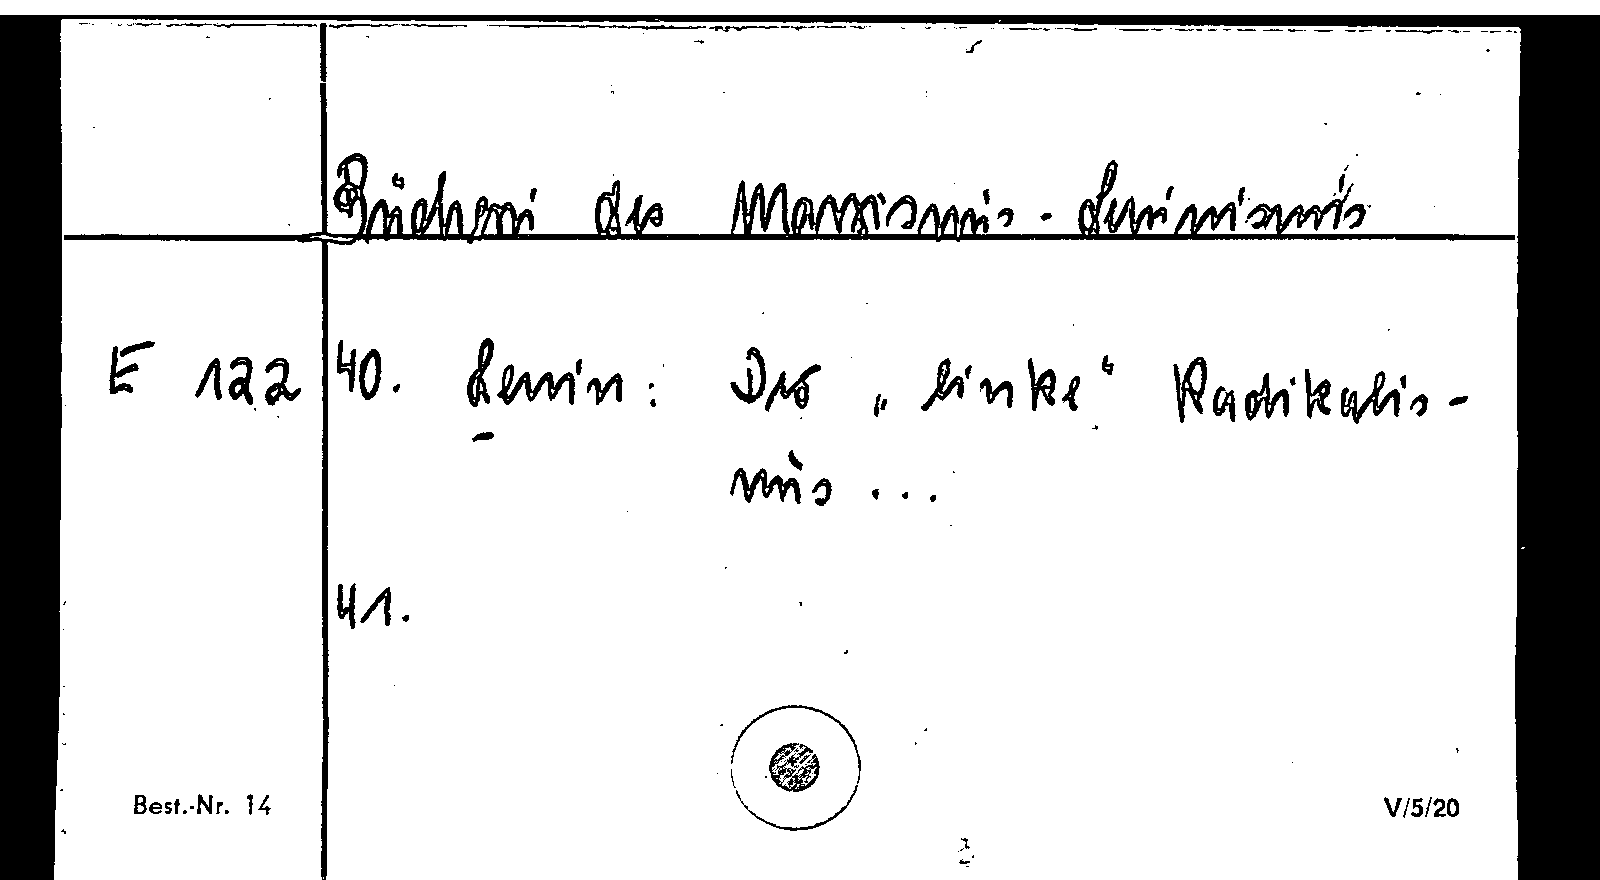 Bücherei des Marxismus-Leninismus
E 122 40. Lenin: Der „linke“ Radikalis-
mus ...
41.
Best.-Nr. 14 V/5/20